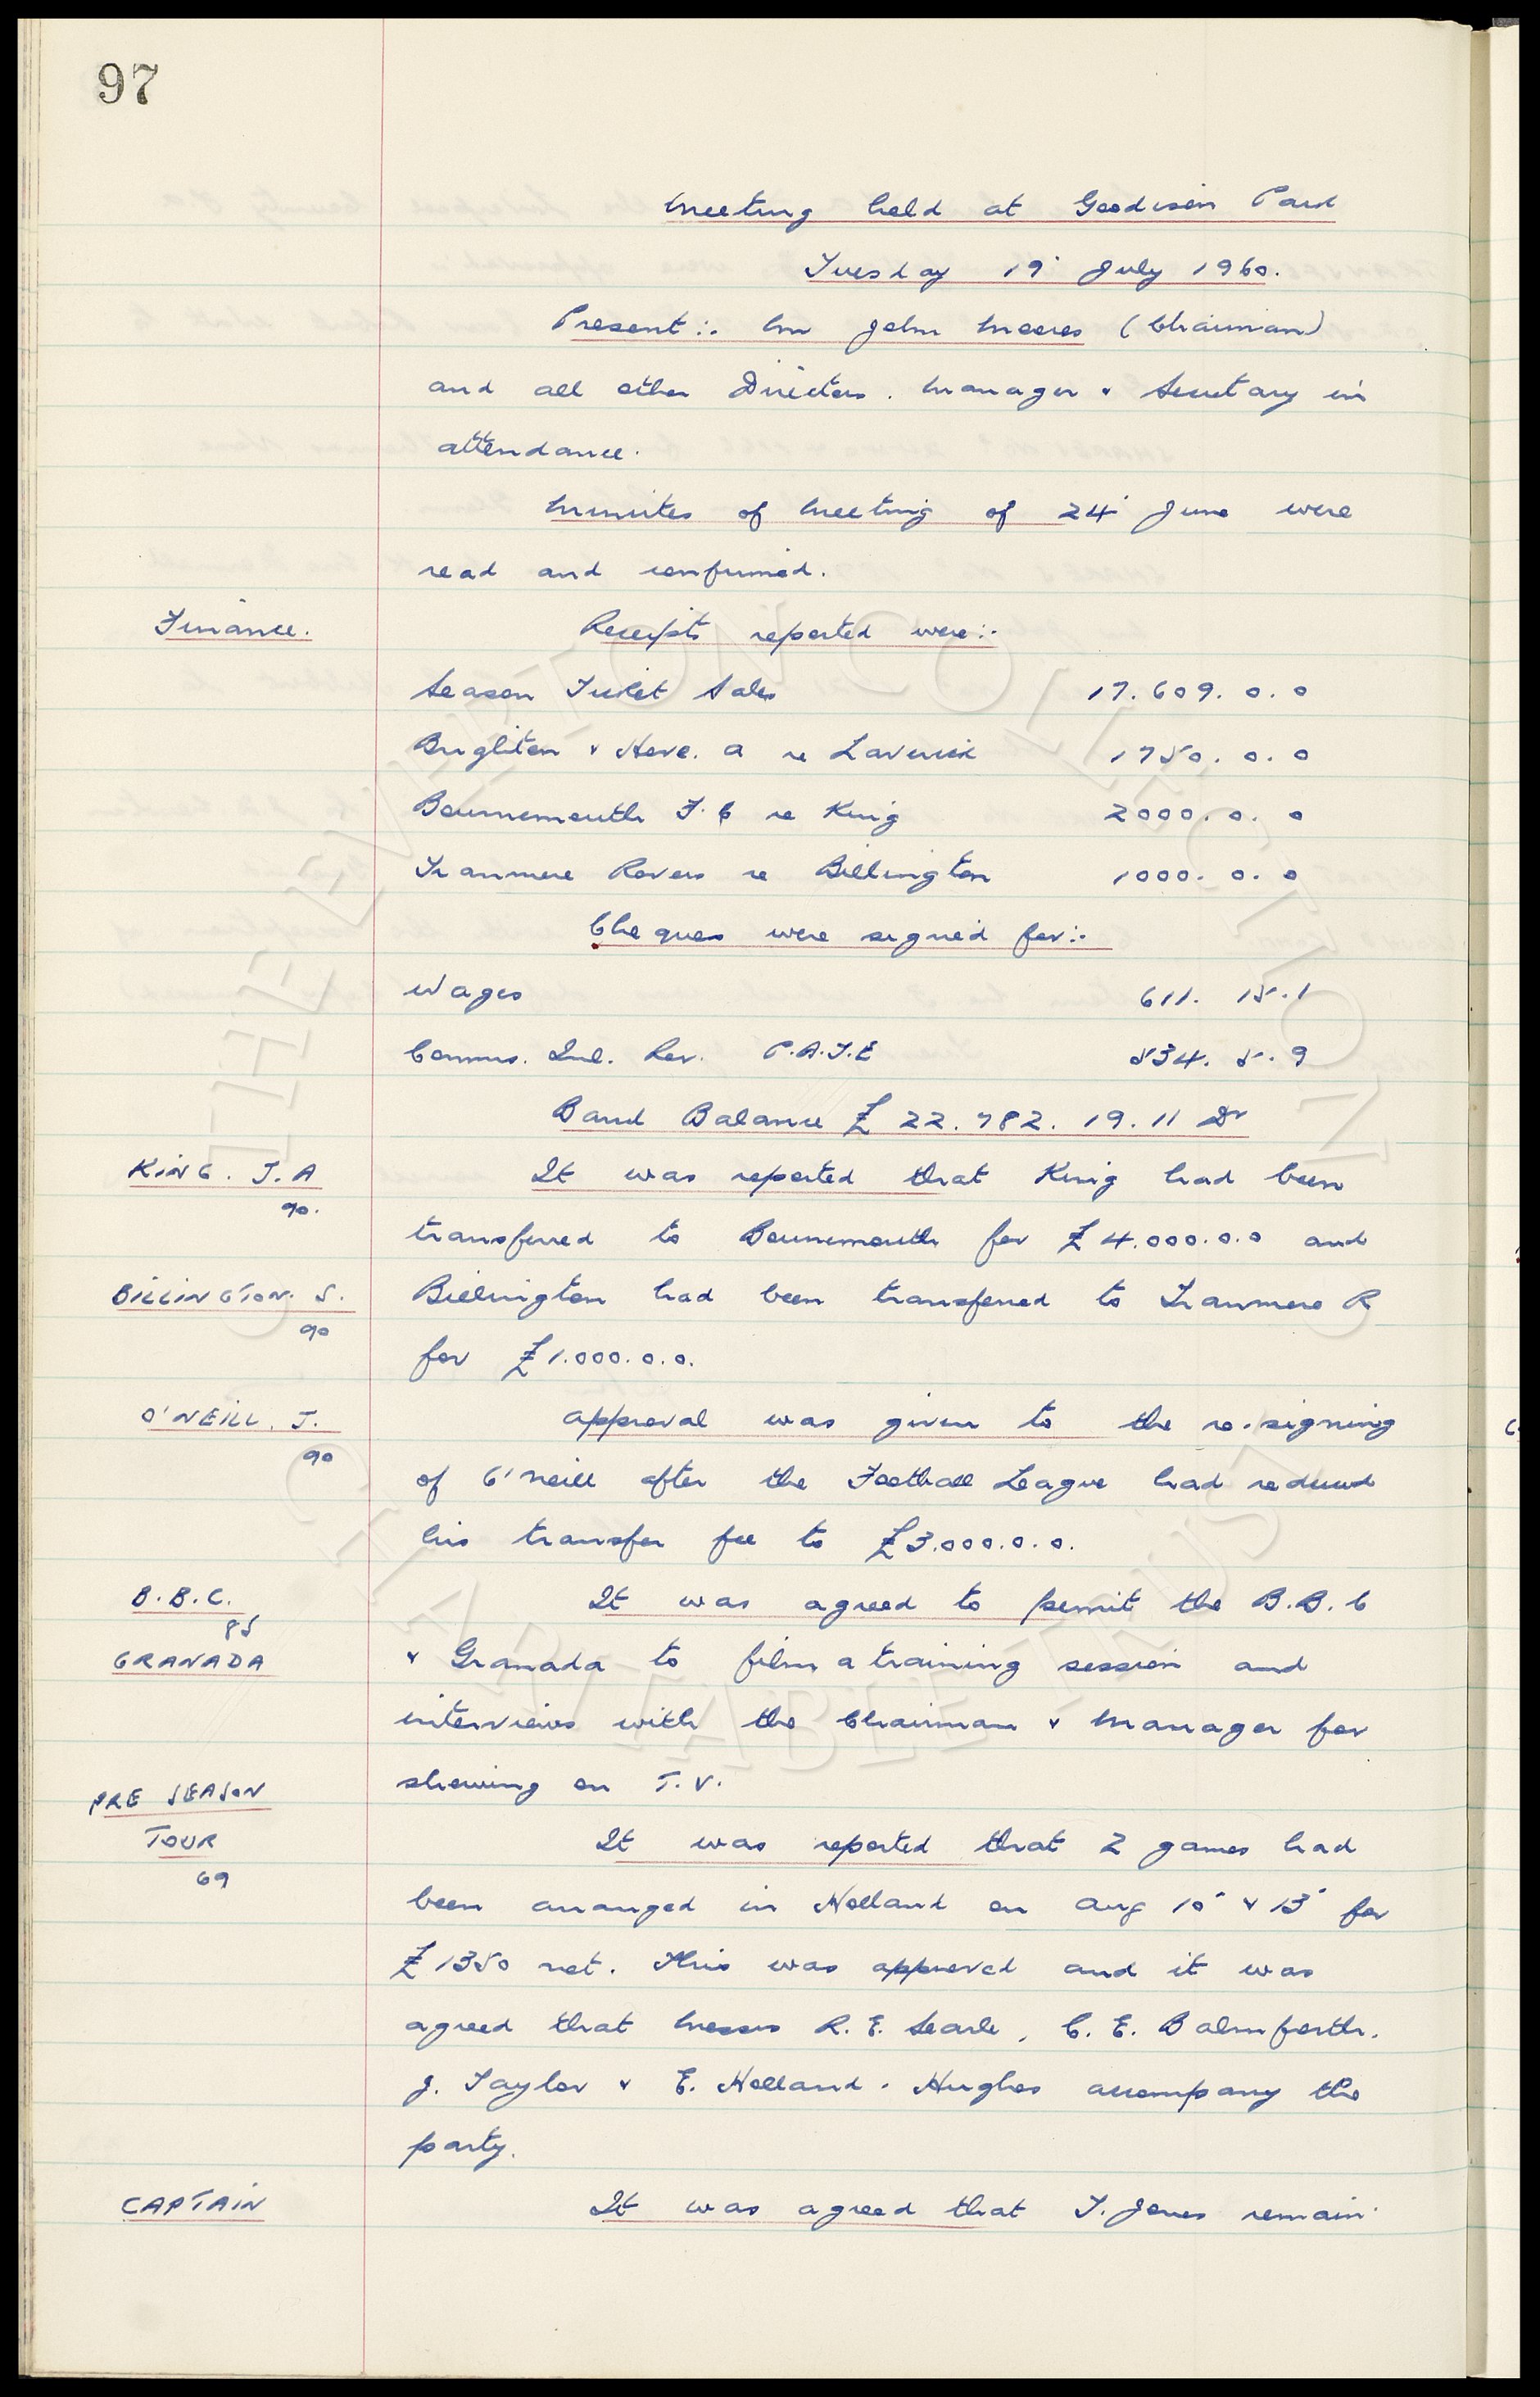 97
Meeting held at Goodison Park
Tuesday 19' July 1960.
Present:. Mr John Moores (Chairman)
and all other Directors. Manager & Secretary in
attendance.
Minutes of Meeting of 24' June were
read and confirmed.
Finance.
Receipts reported were:.
Season Ticket Sales 17.609.0.0
Brighton & Hove. A re Laverick 1750.0.0
Bournemouth F.C re King 2000.0.0
Tranmere Rovers re Billington 1000.0.0
Cheques were signed for:.
Wages 611. 15.1
Comms. Inl. Rev. P.A.Y.E 534. 5.9
Bank Balance £22.782.19.11 Dr
KING. J.A
90.
It was reported that King had been
transferred to Bournemouth for £4.000.0.0 and
BILLINGTON. S.
90
Billington had been transferred to Tranmere R
for £1.000.0.0.
O'NEILL. J.
90
Approval was given to the re-signing
of O'Neill after the Football League had reduced
his transfer fee to £3.000.0.0.
B.B.C.
85
GRANADA
It was agreed to permit the B.B.C
& Granada to film a training session and
interviews with the Chairman & Manager for
showing on T.V.
PRE SEASON
TOUR
69
It was reported that 2 games had
been arranged in Holland on Aug 10' & 13' for
£1350 net. This was approved and it was
agreed that Messrs R.E. Searle, C.E. Balmforth.
J. Taylor & E. Holland-Hughes accompany the
party.
CAPTAIN
It was agreed that T. Jones remain
THE EVERTON COLLECTION
THE EVERTON COLLECTION CHARITABLE TRUST